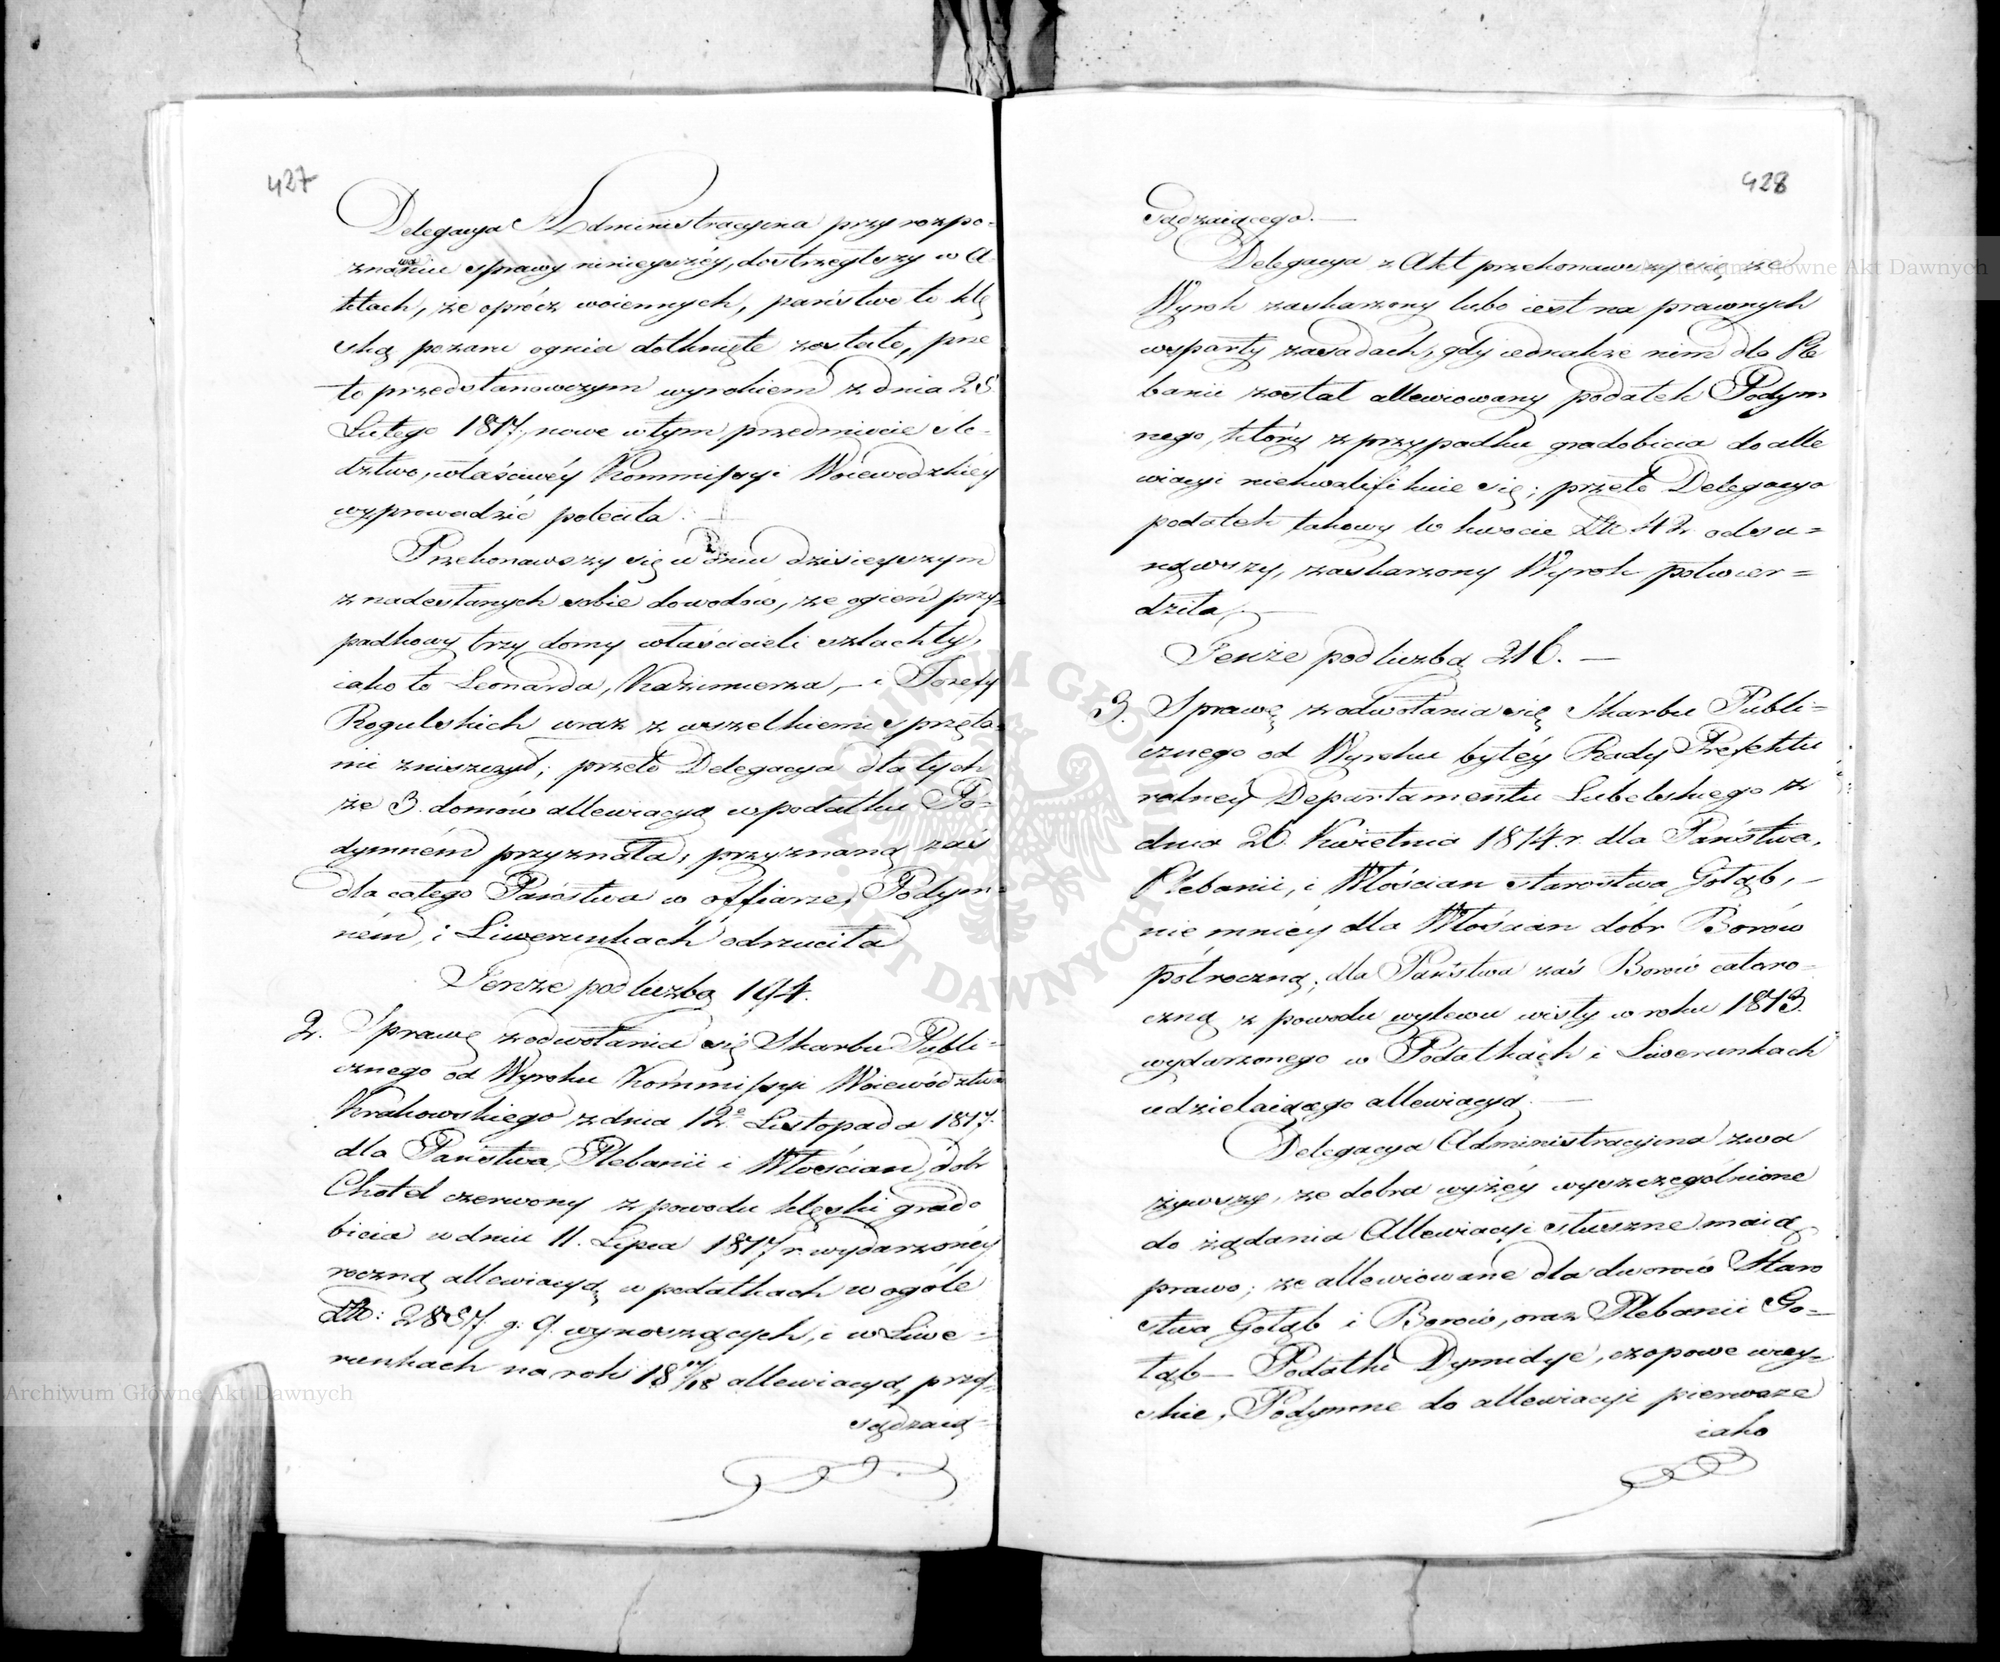 427
Delegacya Administracyina przy rozpo-
znawaniu sprawy ninieyszéy, dostrzegłszy w A
ktach, że oprócz woiennych, państwo to klę
ską pożaru ognia dotknięte zostało, prze
to przedstanowczym wyrokiem z dnia 28
Lutego 1817, nowe w tym przedmiocie śle-
dztwo, właściwéy Kommissyi Woiewodzkiéy
wyprowadzić poleciła.
Przekonawszy się w dniu dzisieyszym
z nadesłanych sobie dowodów, że ogień przy-
padkowy trzy domy właścicieli szlachty,
iako to Leonarda, Kazimierza, i Józefy
Rogulskich wraz z wszelkiemi sprzęta-
mi zniszczył; przeto Delegacya dla tych
że 3. domów allewiacyą w podatku Po-
dymném przyznała, przyznaną zaś
dla całego Państwa w offiarze, Podym-
ném, i Liwerunkach odrzuciła
Tenże pod liczbą 194.
2. Sprawę z odwołania się Skarbu Publi-
cznego od Wyroku Kommissyi Woiewództwa
Krakowskiego z dnia 12o Listopada 1817.
dla Państwa, Plebanii i Włościan, dóbr
Chotel czerwony z powodu klęski grado
bicia w dniu 11. Lipca 1817 r. wydarzonéy
roczną allewiacyą w podatkach w ogóle
Złt: 2857 g. 9. wynoszących, i w Liwe-
runkach na rok 1817/18 allewiacyą, przy-
sądzaią-
428
sądzaiącego.—
Delegacya z Akt przekonawszy się, że
Wyrok zaskarżony lubo iest na prawnych
wsparty zasadach, gdy iednakże nim dla Ple
banii został allewiowany podatek Podym
nego, który z przypadku gradobicia do alle
wiacyi niekwalifikuie się; przeto Delegacya
podatek takowy w kwocie Złt 42 odsu=
nąwszy, zaskarżony Wyrok potwier=
dziła.—
Tenże pod liczbą 216.—
3. Sprawę z odwołania się Skarbu Publi=
cznego od Wyroku byłéy Rady Prefektu
ralnéy Departamentu Lubelskiego z
dnia 26 Kwietnia 1814. r. dla Państwa,
Plebanii, i Włościan starostwa Gołąb,—
niemniéy dla Włościan dóbr Borów
półroczną; dla Państwa zaś Borów całoro-
czną z powodu wylewu wisły w roku 1813.
wydarzonego w Podatkach i Liwerunkach
udzielaiącego allewiacyą.—
Delegacya Administracyina zwa
żywszy, że dobra wyżéy wyszczególnione
do żądania Allewiacyi słuszne maią
prawo; że allewiowane dla dworów Staro
stwa Gołąb i Borów, oraz Plebanii Go-
łąb— Podatki Dymidye, czopowe wiey-
skie, Podymne do allewiacyi pierwsze
iako
Archiwum Główne Akt Dawnych
Archiwum Główne Akt Dawnych
ARCHIWUM GŁÓWNE AKT DAWNYCH